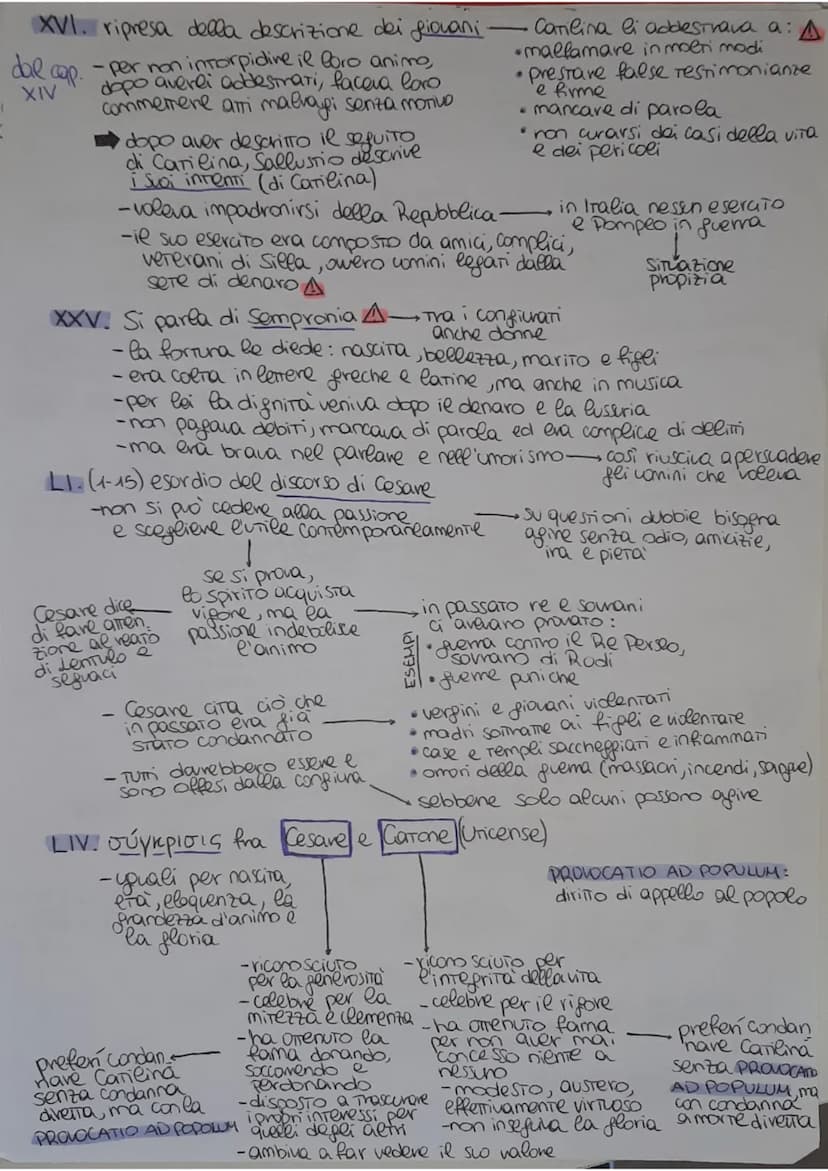 XVI. ripresa della descrizione dei giovani → Catilina li addestrava a:
dal cap. XIV
- per non intorpidire il loro animo,
dopo averli addestrati, faceva loro
commettere atti malvagi senza motivo
• malfamare in molti modi
• prestare false testimonianze
e firme
• mancare di parola
• non curarsi dei casi della vita
e dei pericoli
➡ dopo aver descritto il seguito
di Catilina, Sallustio descrive
i suoi intenti (di Catilina)
- voleva impadronirsi della Repubblica → in Italia nessun esercito
e Pompeo in guerra
↓
situazione
propizia
- il suo esercito era composto da amici, complici,
veterani di Silla, ovvero uomini legati dalla
sete di denaro
XXV. Si parla di Sempronia → tra i congiurati
anche donne
- la fortuna le diede: nascita, bellezza, marito e figli
- era colta in lettere greche e latine, ma anche in musica
- per lei la dignità veniva dopo il denaro e la lussuria
- non pagava debiti, mancava di parola ed era complice di delitti
- ma era brava nel parlare e nell'umorismo → così riusciva a persuadere
gli uomini che voleva
LI. (1-15) esordio del discorso di Cesare
- non si può cedere alla passione
e scegliere l'utile contemporaneamente
→ su questioni dubbie bisogna
agire senza odio, amicizie,
ira e pietà
se si prova,
lo spirito acquista
vigore, ma la
passione indebolisce
l'animo
Cesare dice
di fare atten-
zione al reato
di Lentulo e
seguaci
→ in passato re e sovrani
ci avevano provato:
ESEMPI
• guerra contro il Re Perseo,
sovrano di Rodi
• guerre puniche
- Cesare cita ciò che
in passato era già
stato condannato
• vergini e giovani violentati
• madri sottratte ai figli e violentate
• case e templi saccheggiati e infiammati
• orrori della guerra (massacri, incendi, sangue)
- tutti dovrebbero essere e
sono offesi dalla congiura
→ sebbene solo alcuni possono agire
LIV. σύγκρισις fra Cesare e Catone (Uticense)
- uguali per nascita,
età, eloquenza, la
grandezza d'animo e
la gloria
PROVOCATIO AD POPULUM:
diritto di appello al popolo
- riconosciuto
per la generosità
- celebre per la
mitezza e clemenza
- ha ottenuto la
fama donando,
soccorrendo e
perdonando
- disposto a trascurare
i propri interessi per
quelli degli altri
- ambiva a far vedere il suo valore
preferì condan
nare Catilina
senza condanna
diretta, ma con la
PROVOCATIO AD POPOLUM
- riconosciuto per
l'integrità della vita
- celebre per il rigore
- ha ottenuto fama
per non aver mai
concesso niente a
nessuno
- modesto, austero,
effettivamente virtuoso
- non inseguiva la gloria
preferì condan
nare Catilina
senza PROVOCATIO
AD POPULUM, ma
con condanna
a morte diretta